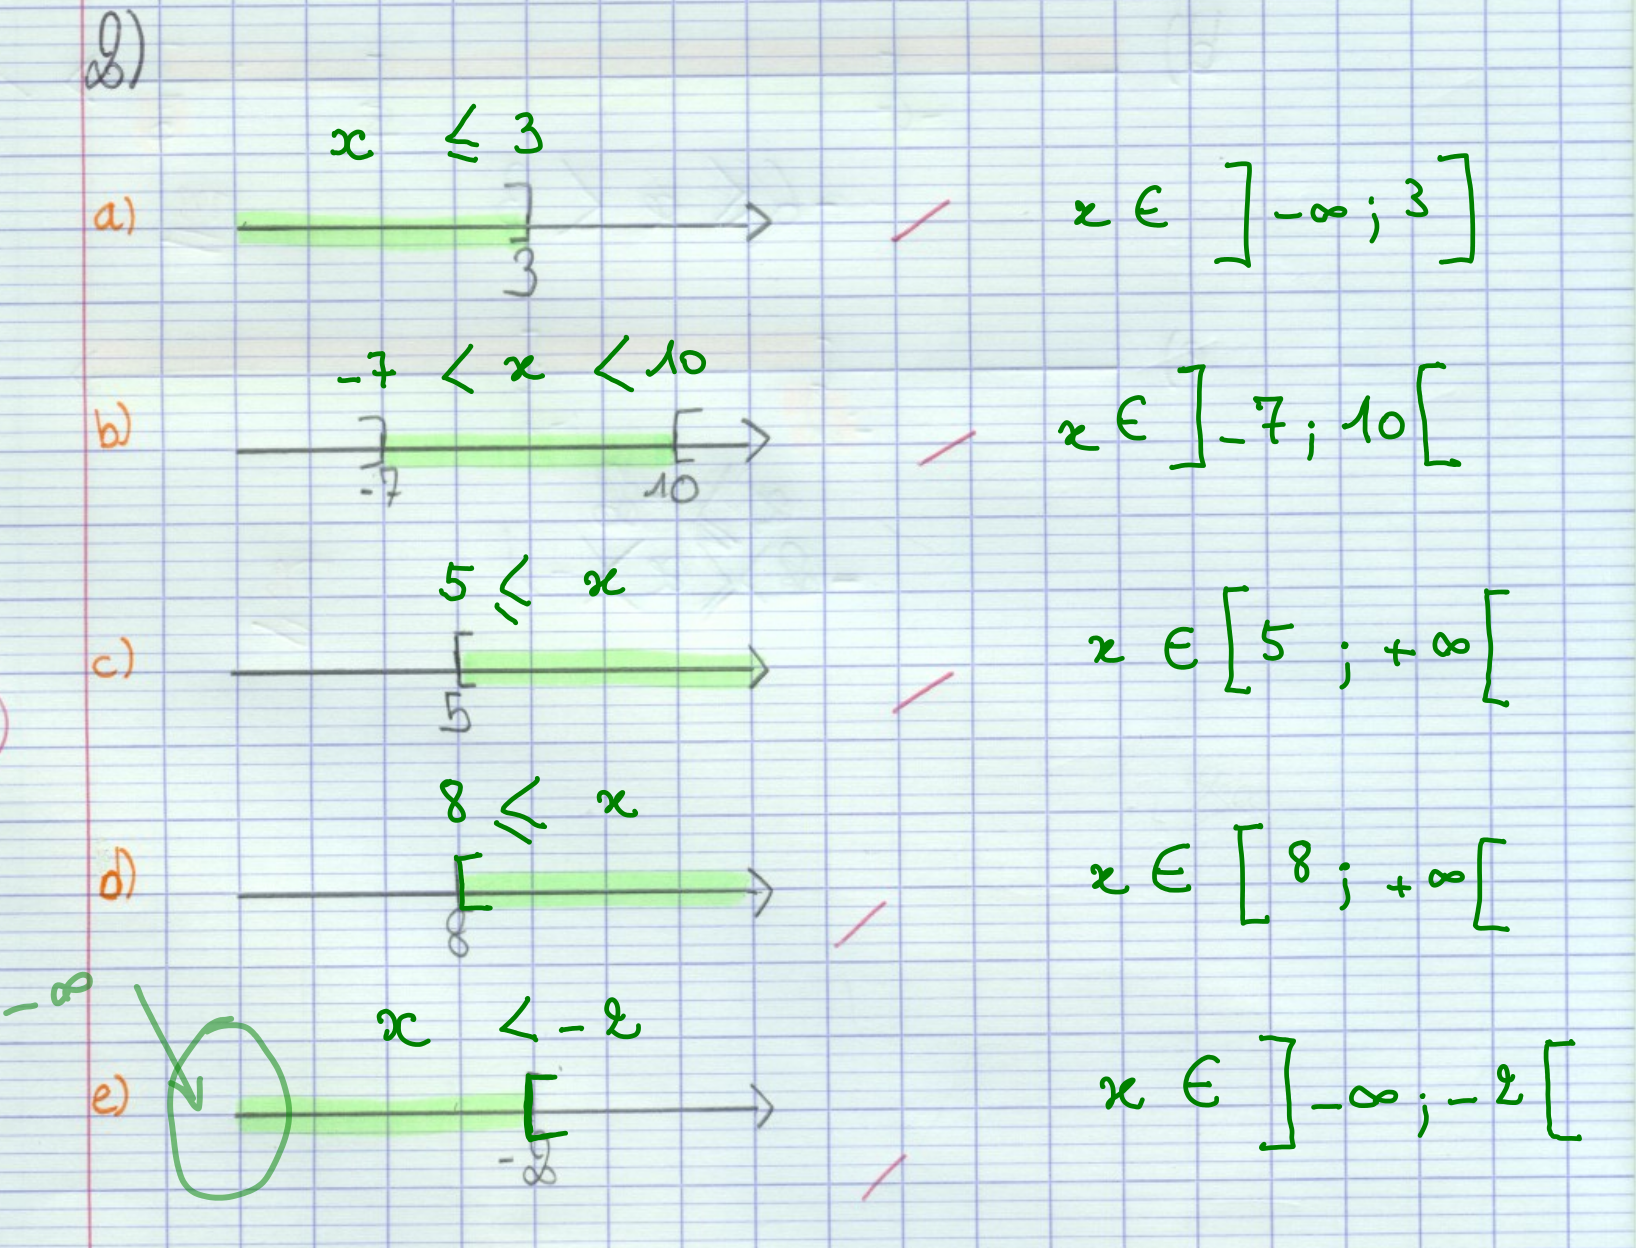 2)
x ≤ 3
a) ] 3 x ∈ ]-∞ ; 3]
-7 < x < 10
b) ] -7 [ 10 x ∈ ]-7 ; 10[
5 ≤ x
c) [ 5 x ∈ [5 ; +∞[
8 ≤ x
d) [ 8 x ∈ [8 ; +∞[
-∞
x < -2
e) [ -2 x ∈ ]-∞ ; -2[